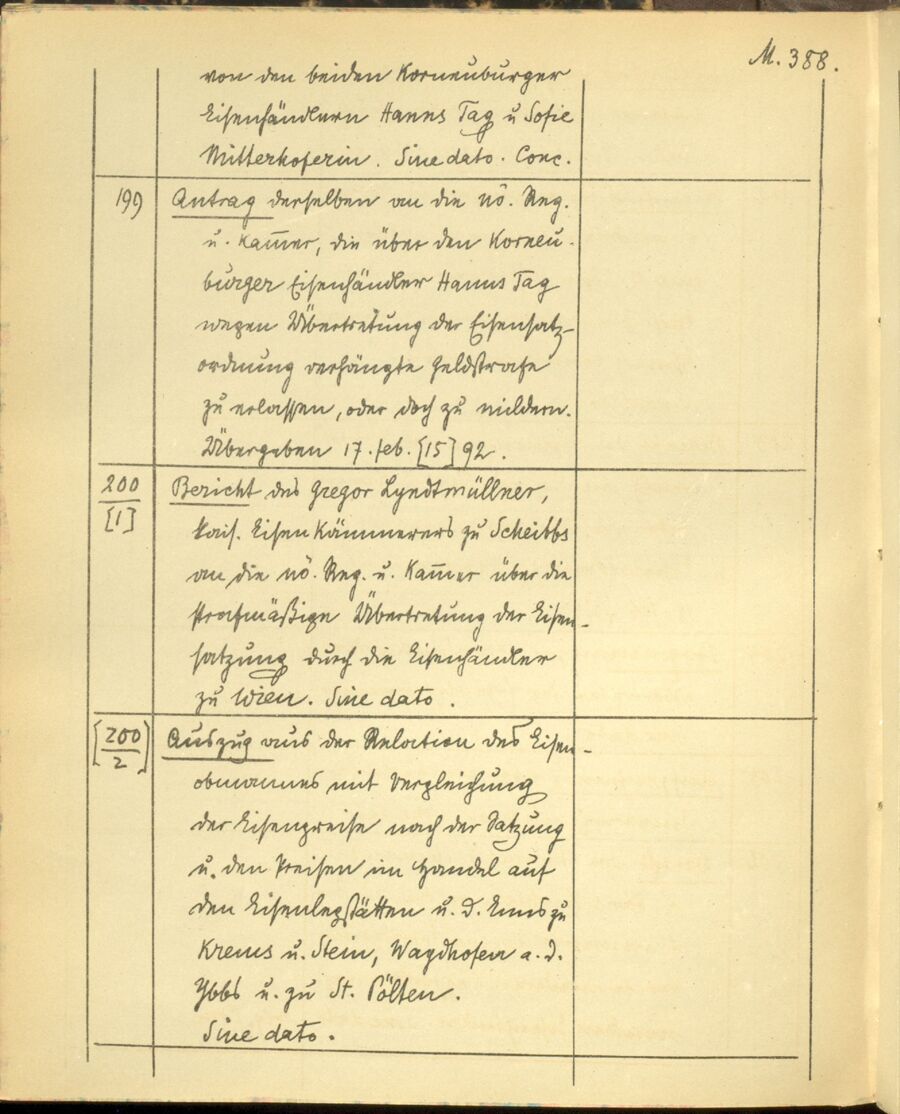 M. 388.
von den beiden Korneuburger
Eisenhändlern Hanns Tag u Sofie
Mitterhoferin. Sine dato. Conc.
199 Antrag derselben an die nö. Reg.
u. Kam̅er, die über den Korneu-
burger Eisenhändler Hanns Tag
wegen Übertretung der Eisensatz-
ordnung verhängte Geldstrafe
zu erlassen, oder doch zu mildern.
Übergeben 17. Feb. [15]92.
200 Bericht des Gregor Lyndtmüllner,
[1] kais. Eisen Kämmerers zu Scheibbs
an die nö. Reg. u. Kam̅er über die
strafmäßige Übertretung der Eisen-
satzung durch die Eisenhändler
zu Wien. Sine dato.
[200 Auszug aus der Relation des Eisen-
2] obmannes mit Vergleichung
der Eisenpreise nach der Satzung
u. den Preisen im Handel auf
den Eisenlegstätten u. d. Enns zu
Krems u. Stein, Waydhofen a. d.
Ybbs u. zu St. Pölten.
Sine dato.